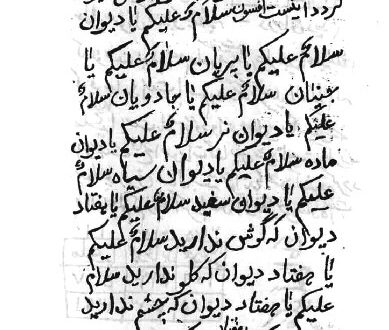 گردد اینست افسون سلامٌ علیکم یا دیوان
سلامٌ علیکم یا پریان سلامٌ علیکم یا
جنیان سلامٌ علیکم یا جادویان سلامٌ
علیکم یا دیوان نر سلامٌ علیکم یا دیوان
ماده سلامٌ علیکم یا دیوان سیاه سلامٌ
علیکم یا دیوان سفید سلامٌ علیکم یا هفتاد
دیوان که گوش ندارید سلامٌ علیکم
یا هفتاد دیوان که گلو ندارید سلام
علیکم یا هفتاد دیوان که چشم ندارید